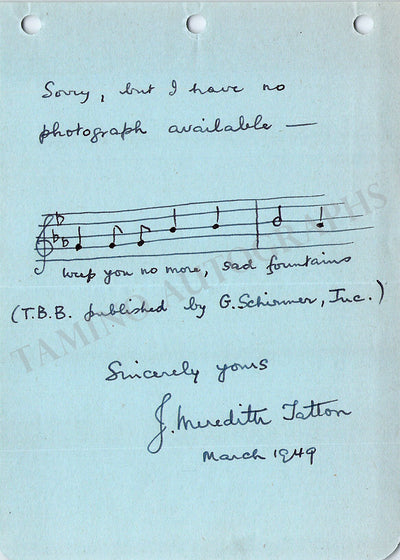 Sorry, but I have no
photograph available —
weep you no more, sad fountains
(T.B.B. published by G. Schirmer, Inc.)
TAMINO AUTOGRAPHS
Sincerely yours
J. Meredith Tatton
March 1949